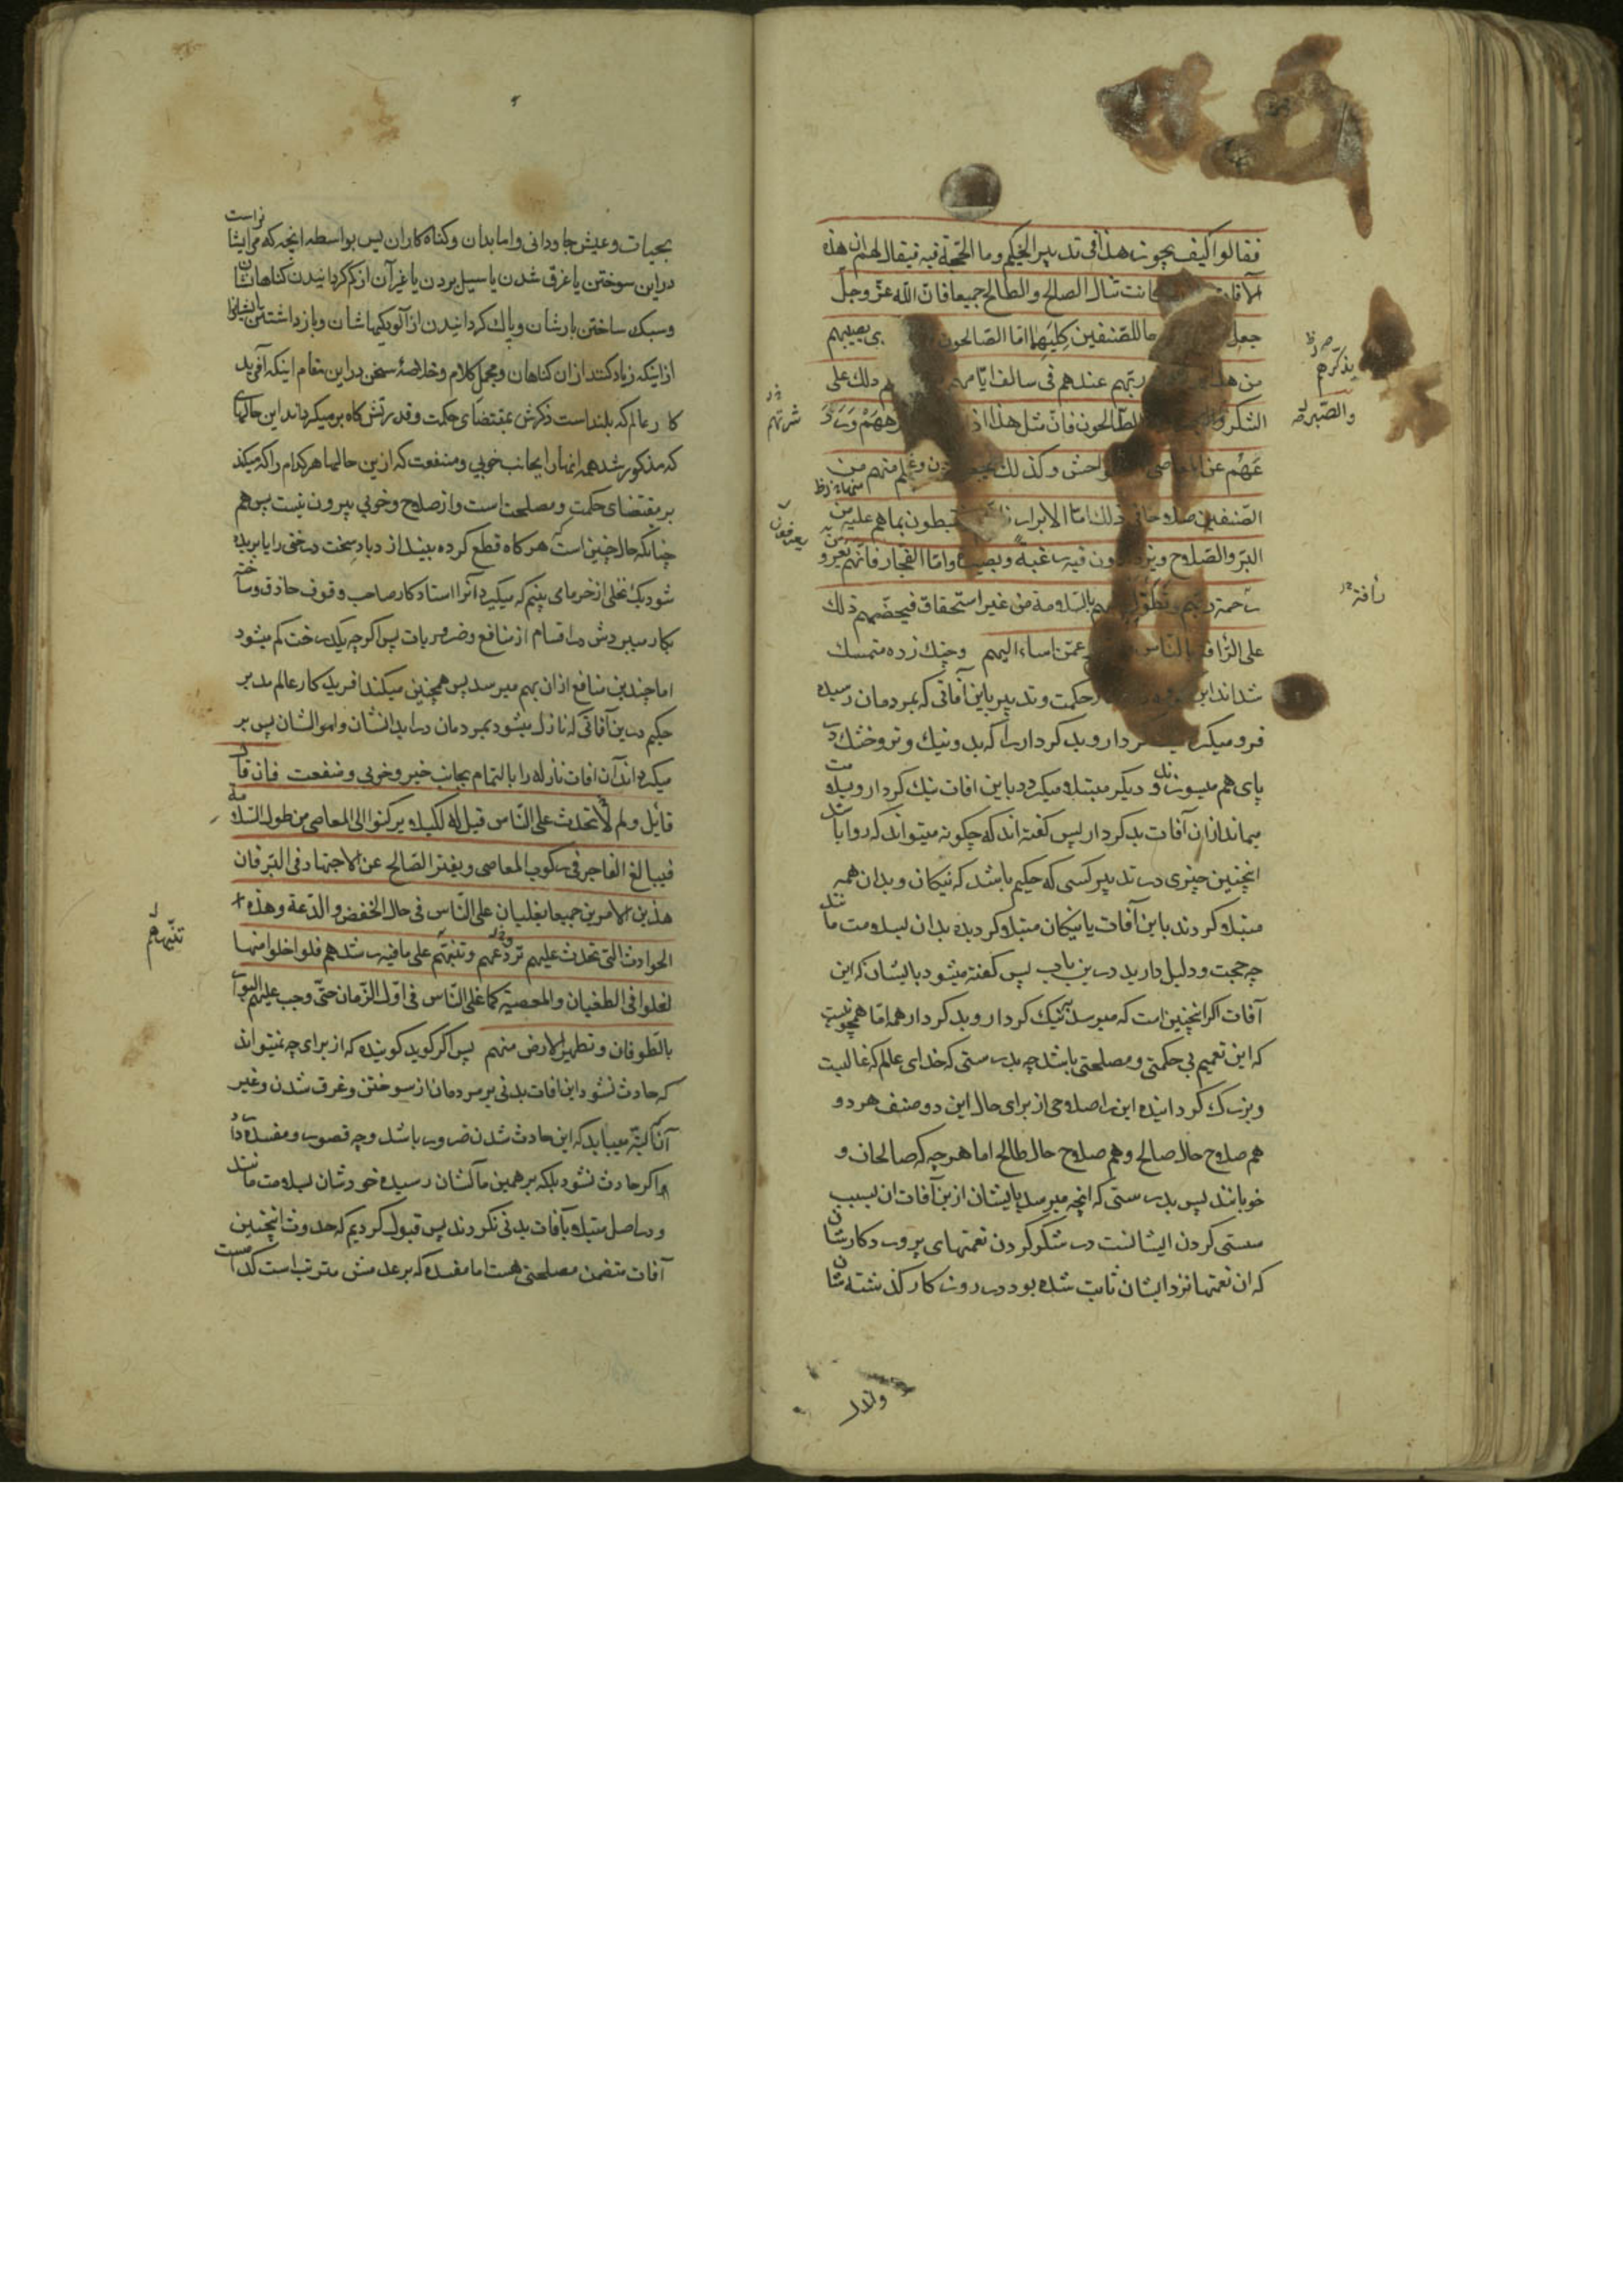 فقالوا كيف يجوز هذا فى تدبير الحكيم وما الحجّة فيه فيقال لهم ان هذه
الآفات كانت تنال الصالح والطالح جميعا فانّ اللّه عزّ وجلّ
جعل للصّنفين كليهما امّا الصّالحون يصيبهم
من هذا ربّهم عندهم فى سالف ايّامهم ذلك على
الشكر و الطّالحون فانّ مثل هذا اذا
عنهم عن المعاصى والفواحش وكذلك يجعل منهم من
الصّنفين صلاحا فى ذلك امّا الابرار يغتبطون بما هم عليه من
البرّ والصّلاح ويزدادون فيه رغبة وبصيرة وامّا الفجّار فانّهم
رحمة ربّهم وتطوّله عليهم بالسّلامة من غير استحقاق فيحضّهم ذلك
على الرّافة بالنّاس عمّن اساء اليهم وچنك زده متمسك
شداند اين حكمت وتدبير باين آفاتى كه بمردمان رسيده
فرو ميگيرد كردار وبد كردار را كه بد ونيك وتر وخشك
پاى هم ميسوزند و ديگر مبتلا ميگردد باين افات نيك كردار وسلامت
ميماند ازان آفات بد كردار پس گفته اند كه چكونه ميتواند كه روا باشد
انچنين چيزى در تدبير كسى كه حكيم باشد كه نيكان وبدان همه
مبتلا كردند باين آفات يا نيكان مبتلا كرديده بدان بسلامت مانند
چه حجت ودليل داريد درين باب پس گفته ميشود باليشان كه اين
آفات اگر انچنين است كه ميرسد بنيك كردار وبد كردار همه امّا همچو نيست
كه اين تعميم بى حكمتى ومصلحتى باشد چه بدرستى كه خداى عالم كه غالبست
وبزرك كردانيده اين را صلاحى از براى حال اين دو صنف هر دو
هم صلاح حال صالح وهم صلاح حال طالح اما هر چه كه صالحان و
خوبانند پس بدرستى كه انچه ميرسد بايشان ازين آفات ان بسبب
سستى كردن ايشانست در شكر كردن نعمتهاى پرورد كارشان
كه ان نعمتها نزد ايشان ثابت شده بود در روزكار كذشته شان
يذكّرهم
والصّبر
شرّتهم
رأفة
يعرفون
بحيات وعيش جاودانى واما بدان وكناه كاران پس بواسطه انچه كه مر ايشانراست
دراين سوختن يا غرق شدن يا سيل بردن يا غير آن از كم كردانيدن كناهان شان
وسبك ساختن بارشان وپاك كردانيدن از آلودكيها شان وباز داشتن ايشانرا
از اينكه زياد كنند ازان كناهان ومجمل كلام وخلاصهٔ سخن دراين مقام اينكه آفريد
كار عالم كه بلند است ذكرش بمقتضاى حكمت وقدرتش كاه بر ميكرداند اين حالهاى
كه مذكور شد همه انها را بجانب خوبى ومنفعت كه ازين حالها هر كدام را كه ميكند
بر مقتضاى حكمت ومصلحت است واز صلاح وخوبى بيرون نيست پس هم
چنانكه حال چنين است هر كاه قطع كرده بيندازد باد سخت درختى را يا بريده
شود يك نخلى از خرما مى بينيم كه ميكيرد آنرا استاد كار صاحب وقوف حاذق وساخته
بكار ميبردش در اقسام از منافع وضروريات پس اكر چه يك درخت كم ميشود
اما چندين منافع ازان بهم ميرسد پس همچنين ميكند افريد كار عالم مدبر
حكيم درين آفاتى كه نازل ميشود بمردمان در ابدانشان واموالشان پس بر
ميكرداند آن افات نازله را بالتمام بجانب خير وخوبى ومنفعت فان قال
قايل ولم لا تحدث على النّاس قيل له لكيلا يركنوا الى المعاصى من طول السّلامة
فيبالغ الفاجر فى ركوب المعاصى ويفتر الصّالح عن الاجتهاد فى البرّ فان
هذين الامرين جميعا يغلبان على النّاس فى حال الخفض والدّعة وهذه
الحوادث التى تحدث عليهم تردعهم وتنبّهم على ما فيه رشدهم فلو اخلوا منها
لغلوا فى الطغيان والمعصية كما غلى النّاس فى اوّل الزّمان حتّى وجب عليهم البوار
بالطّوفان وتطهير الارض منهم پس اكر كويد كوينده كه از براى چه نميتواند
كه حادث نشود اين افات بدنى بر مردمان از سوختن وغرق شدن وغير
آنا البتّه ميبايد كه اين حادث شدن ضرور باشد وچه قصور ومفسده دارد
اكر حادث نشود بلكه بر همين ما كشان رسيده خودشان بسلامت مانند
ودر اصل مبتلا بآفات بدنى نكردند پس قبول كرديم كه حدوث انچنين
آفات متضمن مصلحتى هست اما مفسده كه بر عدمش مترتب است كدامست
تنبّههم